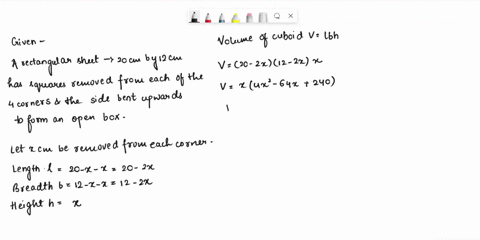 Given -
A rectangular sheet → 20cm by 12cm
has squares removed from each of the
4 corners & the side bent upwards
to form an open box.
Let x cm be removed from each corner.
Length l = 20-x-x = 20-2x
Breadth b = 12-x-x = 12-2x
Height h = x
Volume of cuboid V = lbh
V = (20-2x)(12-2x) x
V = x(4x²-64x+240)